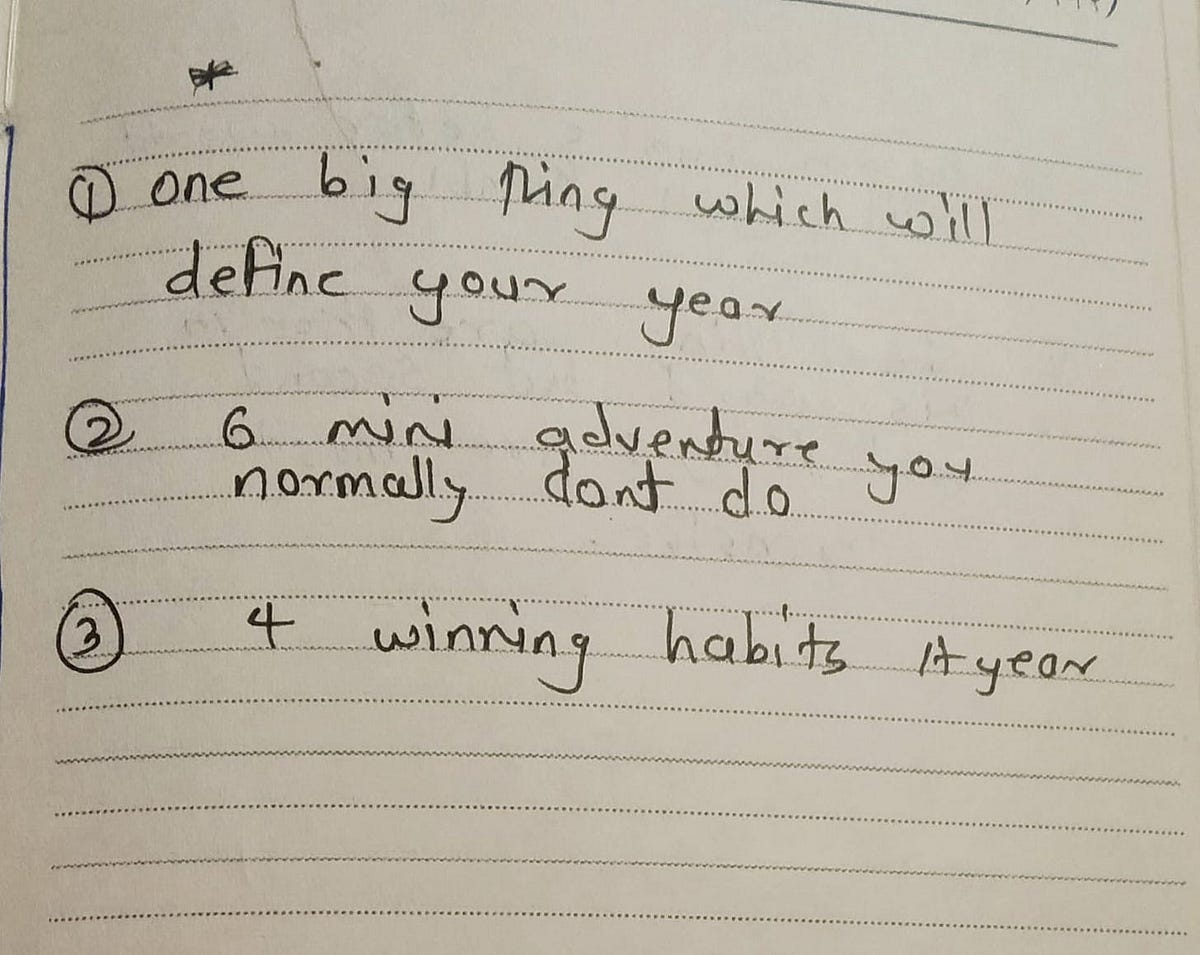 *
① one big thing which will
define your year
② 6 mini adventure you
normally dont do
③ 4 winning habits 1t year